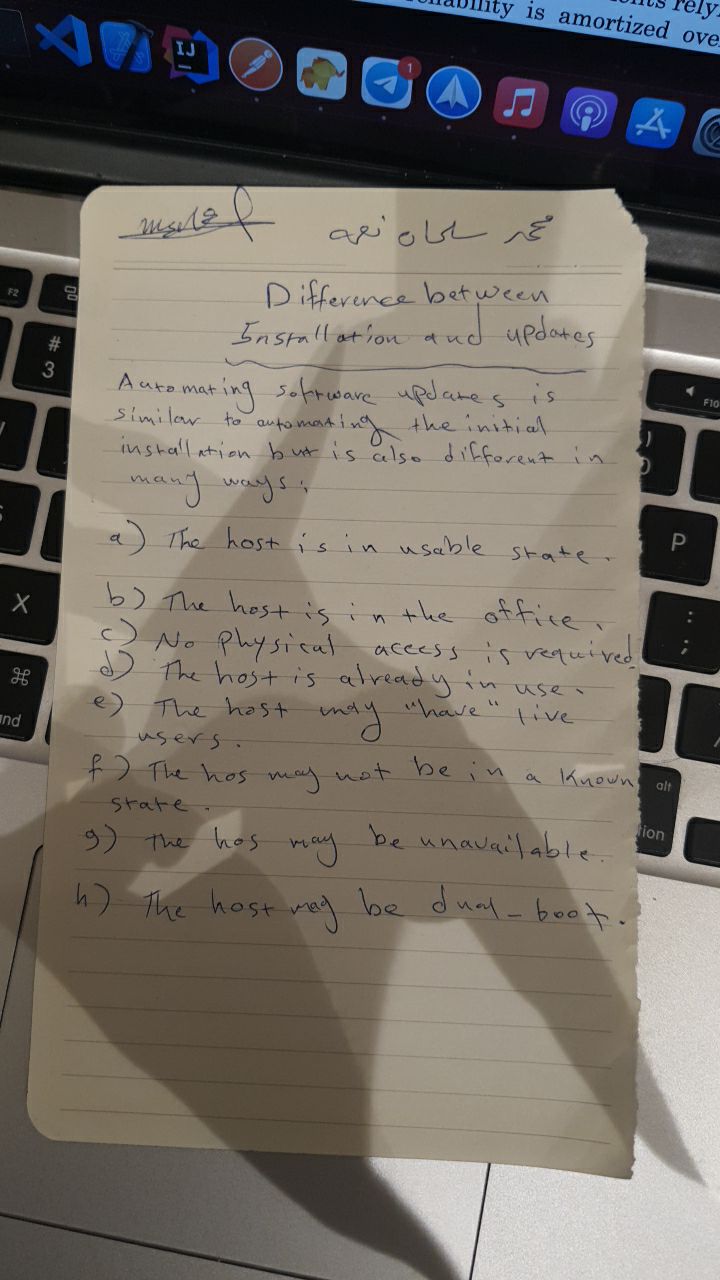 ability is amortized ove
IJ
1
محمد سلمان نعمه
Difference between
Installation and updates
Automating software updates is
similar to automating the initial
installation but is also different in
many ways:
a) The host is in usable state.
b) The host is in the office.
c) No physical access is required.
d) The host is already in use.
e) The host may "have" live
users.
f) The hos may not be in a known
state.
g) The hos may be unavailable.
h) The host may be dual-boot.
F2
#
3
F10
X
P
:
;
⌘
alt